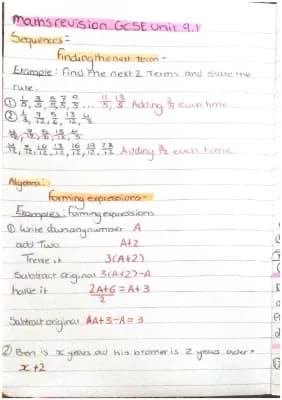 maths revision GCSE Unit 9.1
Sequences:-
Finding the next term -
Example: Find the next 2 Terms and state the
rule.
① 1/5, 3/5, 5/5, 7/5, 9/5 ... 11/5, 13/5 Adding 2/5 each time
② 1/3, 7/12, 5/6, 13/12, 4/3
16/12, 19/12, 22/12 Adding 3/12 each time
Algebra:
forming expressions -
Examples: forming expressions
① Write down any number A
add Two A+2
Treble it 3(A+2)
Subtract original 3(A+2)-A
halve it 2A+6/2 = A+3
Subtract original A+3-A = 3
② Ben is x years old his brother is 2 years older
x+2